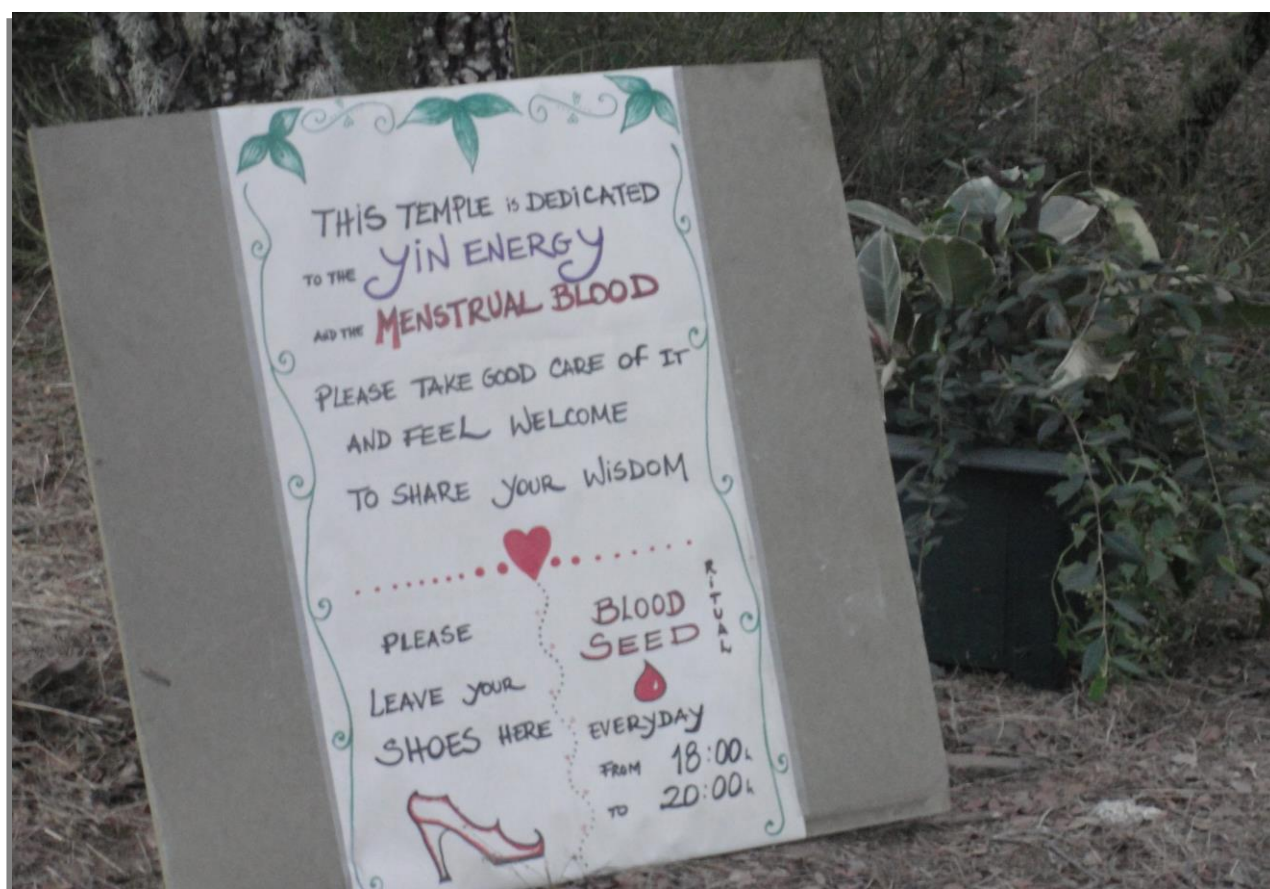 THIS TEMPLE is DEDICATED
TO THE YIN ENERGY
AND THE MENSTRUAL BLOOD
PLEASE TAKE GOOD CARE OF IT
AND FEEL WELCOME
TO SHARE YOUR WISDOM
PLEASE
LEAVE YOUR
SHOES HERE
BLOOD
SEED
RITUAL
EVERYDAY
FROM 18:00h
TO 20:00h